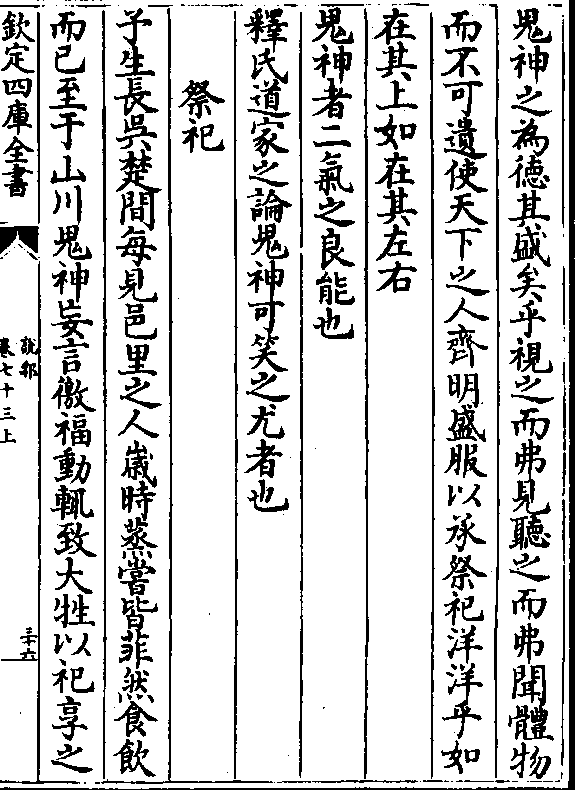 鬼神之為徳其盛矣乎視之而弗見聽之而弗聞體物
而不可遺使天下之人齊明盛服以承祭祀洋洋乎如
在其上如在其左右
鬼神者二氣之良能也
釋氏道家之論鬼神可笑之尤者也
祭祀
予生長吳楚間每見邑里之人嵗時蒸嘗皆菲然食飲
而已至于山川鬼神妄言徼福動輒致大牲以祀享之
欽定四庫全書
説郛
卷七十三上
三十六